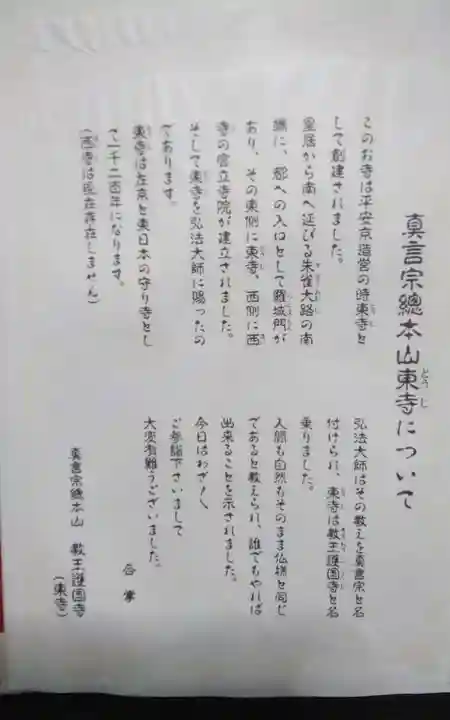 真言宗總本山東寺について
とうじ
このお寺は平安京造営の時東寺と
して創建されました。
皇居から南へ延びる朱雀大路の南
端に、都への入口として羅城門が
あり、その東側に東寺、西側に西
寺の官立寺院が建立されました。
そして東寺を弘法大師に賜ったの
であります。
東寺は左京と東日本の守り寺とし
て一千二百年になります。
(西寺は現在存在しません)
弘法大師はその教えを真言宗と名
付けられ、東寺は教王護国寺と名
乗りました。
人間も自然もそのまま仏様と同じ
であると教えられ、誰でもやれば
出来ることを示されました。
今日はわざ〳〵
ご参詣下さいまして
大変有難うございました。
合掌
真言宗總本山 教王護国寺
(東寺)